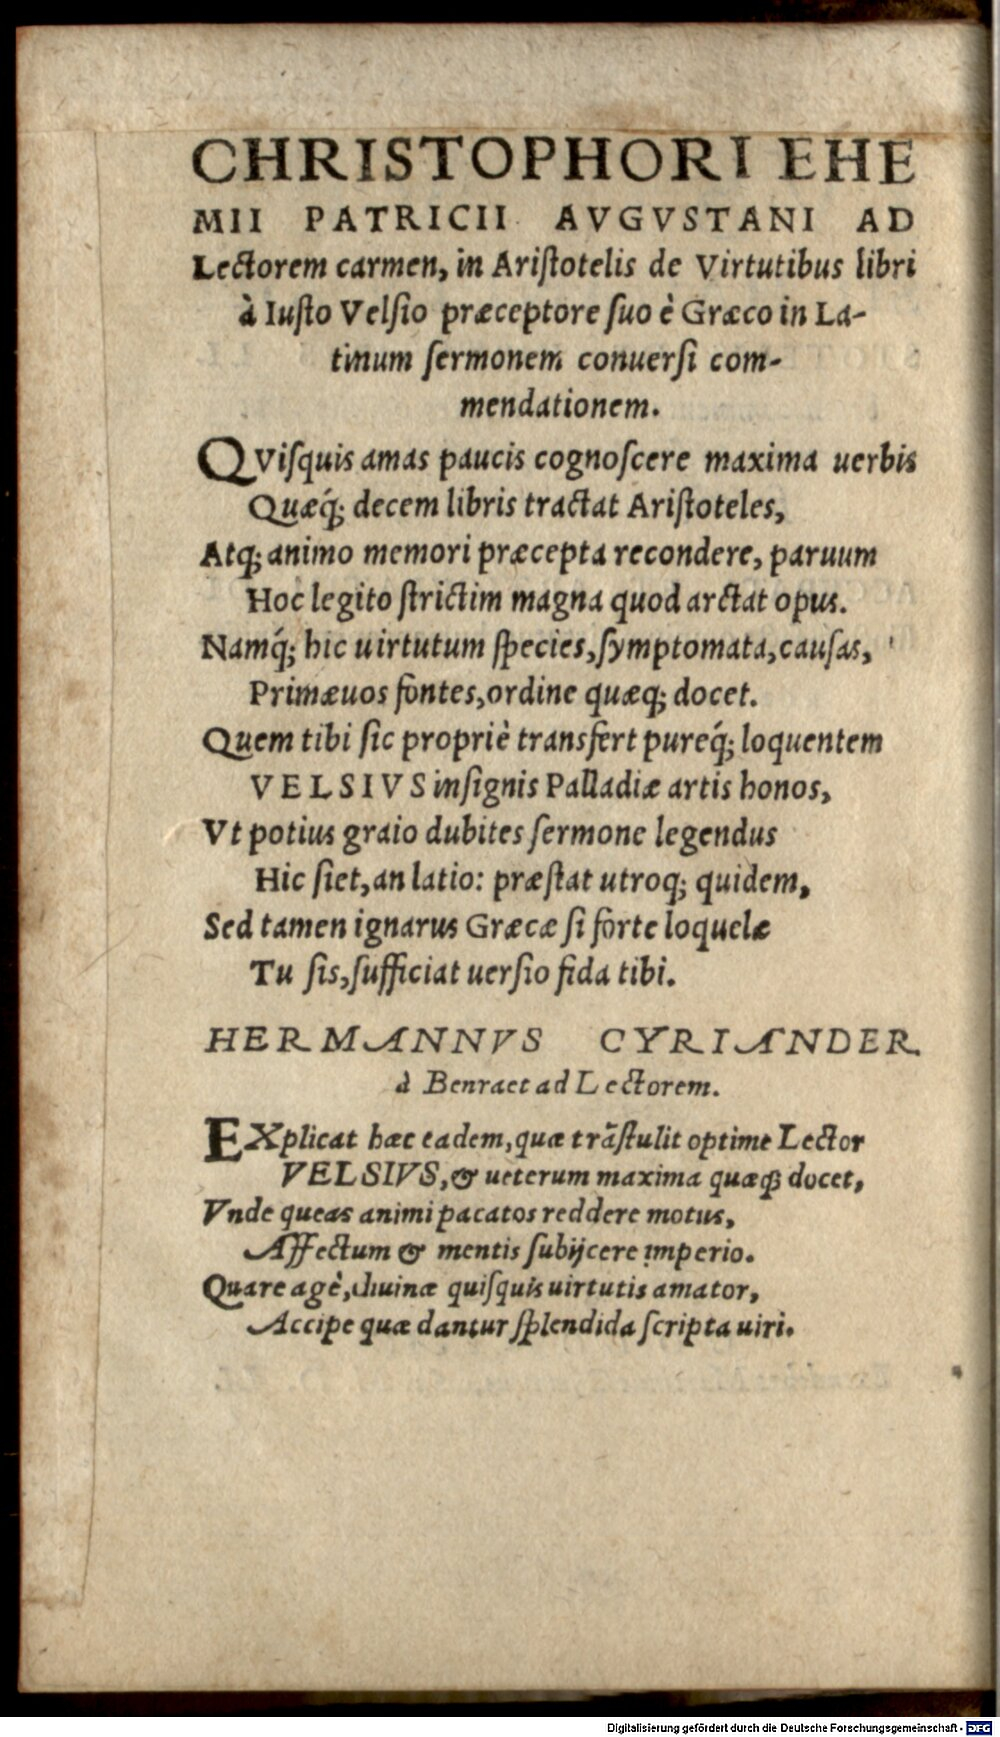 CHRISTOPHORI EHE
MII PATRICII AVGVSTANI AD
Lectorem carmen, in Ariſtotelis de Virtutibus libri
à Iuſto Velſio præceptore ſuo è Græco in La-
tinum ſermonem conuerſi com-
mendationem.
QViſquis amas paucis cognoſcere maxima uerbis
Quæq́; decem libris tractat Ariſtoteles,
Atq; animo memori præcepta recondere, paruum
Hoc legito ſtrictim magna quod arctat opus.
Namq́; hic uirtutum ſpecies, ſymptomata, cauſas,
Primæuos fontes, ordine quæq; docet.
Quem tibi ſic propriè transfert pureq́; loquentem
VELSIVS inſignis Palladiæ artis honos,
Vt potius graio dubites ſermone legendus
Hic ſiet, an latio: præſtat utroq; quidem,
Sed tamen ignarus Græcæ ſi forte loquelæ
Tu ſis, ſufficiat uerſio fida tibi.
HERMANNVS CYRIANDER
à Benraet ad Lectorem.
EXplicat hæc eadem, quæ trãſtulit optime Lector
VELSIVS, & ueterum maxima quæq; docet,
Vnde queas animi pacatos reddere motus,
Affectum & mentis ſubijcere imperio.
Quare agè, diuinæ quiſquis uirtutis amator,
Accipe quæ dantur ſplendida ſcripta uiri.
Digitalisierung gefördert durch die Deutsche Forschungsgemeinschaft - DFG